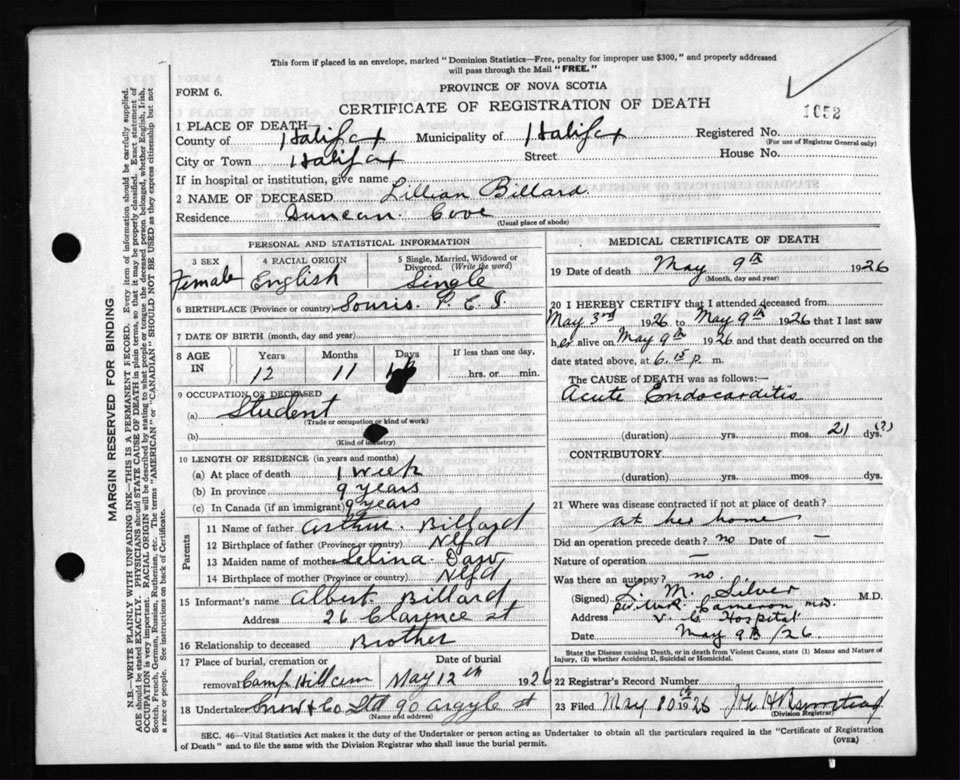 This form if placed in an envelope, marked "Dominion Statistics—Free, penalty for improper use $300," and properly addressed
will pass through the Mail "FREE."
PROVINCE OF NOVA SCOTIA
FORM 6.
CERTIFICATE OF REGISTRATION OF DEATH
1652
1 PLACE OF DEATH—
County of Halifax Municipality of Halifax Registered No.
(For use of Registrar General only)
City or Town Halifax Street House No.
If in hospital or institution, give name
2 NAME OF DECEASED Lillian Billard
Residence Duncan Cove
(Usual place of abode)
PERSONAL AND STATISTICAL INFORMATION
3 SEX 4 RACIAL ORIGIN 5 Single, Married, Widowed or
Divorced. (Write the word)
Female English Single
6 BIRTHPLACE (Province or country) Souris. P. E. I.
7 DATE OF BIRTH (month, day and year)
8 AGE IN Years Months Days If less than one day,
12 11 hrs. or min.
9 OCCUPATION OF DECEASED
(a) Student
(Trade or occupation or kind of work)
(b)
(Kind of industry)
10 LENGTH OF RESIDENCE (in years and months)
(a) At place of death 1 Week
(b) In province 9 years
(c) In Canada (if an immigrant) 9 years
Parents
11 Name of father Arthur. Billard
12 Birthplace of father (Province or country) Nfld
13 Maiden name of mother Selina
14 Birthplace of mother (Province or country) Nfld
15 Informant's name Albert Billard
Address 26 Clarence st
16 Relationship to deceased Brother
17 Place of burial, cremation or Date of burial
removal Camp Hill cem May 12th 1926
18 Undertaker Snow & Co Ltd 90 Argyle st
(Name and address)
MEDICAL CERTIFICATE OF DEATH
19 Date of death May 9th 1926
(Month, day and year)
20 I HEREBY CERTIFY that I attended deceased from
May 3rd 1926 to May 9th 1926 that I last saw
her alive on May 9th 1926 and that death occurred on the
date stated above, at 6.15 p. m.
The CAUSE OF DEATH was as follows:—
Acute Endocarditis
(duration) yrs. mos. 21 dys. (?)
CONTRIBUTORY.
(duration) yrs. mos. dys.
21 Where was disease contracted if not at place of death?
at her home
Did an operation precede death? no Date of —
Nature of operation —
Was there an autopsy? no.
(Signed) L. M. Silver M.D.
per Cameron M.D.
Address V. G. Hospital
Date May 9th /26.
State the Disease causing Death, or in death from Violent Causes, state (1) Means and Nature of
Injury, (2) whether Accidental, Suicidal or Homicidal.
22 Registrar's Record Number
23 Filed May 10th 1926
(Division Registrar)
SEC. 46—Vital Statistics Act makes it the duty of the Undertaker or person acting as Undertaker to obtain all the particulars required in the "Certificate of Registration
of Death" and to file the same with the Division Registrar who shall issue the burial permit.
(OVER)
MARGIN RESERVED FOR BINDING
N.B.—WRITE PLAINLY WITH UNFADING INK—THIS IS A PERMANENT RECORD. Every item of information should be carefully supplied.
AGE should be stated EXACTLY. PHYSICIANS should STATE CAUSE OF DEATH in plain terms, so that it may be properly classified. Exact statement of
OCCUPATION is very important. RACIAL ORIGIN will be described by stating to what people or tongue the deceased person belonged, whether English, Irish,
Scotch, French, German, Russian, Ruthenian, etc. The terms "AMERICAN" or "CANADIAN" SHOULD NOT BE USED as they express citizenship but not
a race or people. See instructions on back of Certificate.